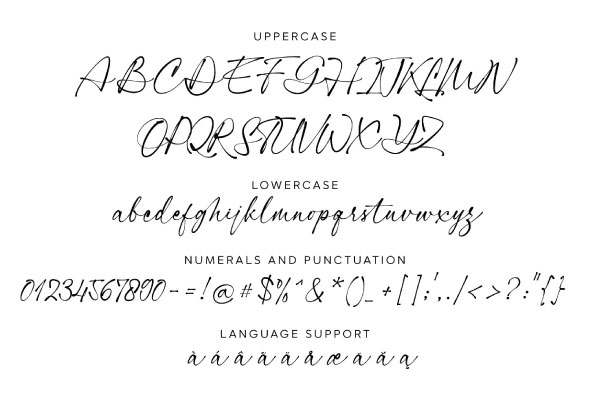 UPPERCASE
ABCDEFGHIJKLMN
OPQRSTUVWXYZ
LOWERCASE
abcdefghijklmnopqrstuvwxyz
NUMERALS AND PUNCTUATION
01234567890-=!@#$%^&*()_+[];',./<>?:"{}
LANGUAGE SUPPORT
à á â ã ä å æ ā ă ą